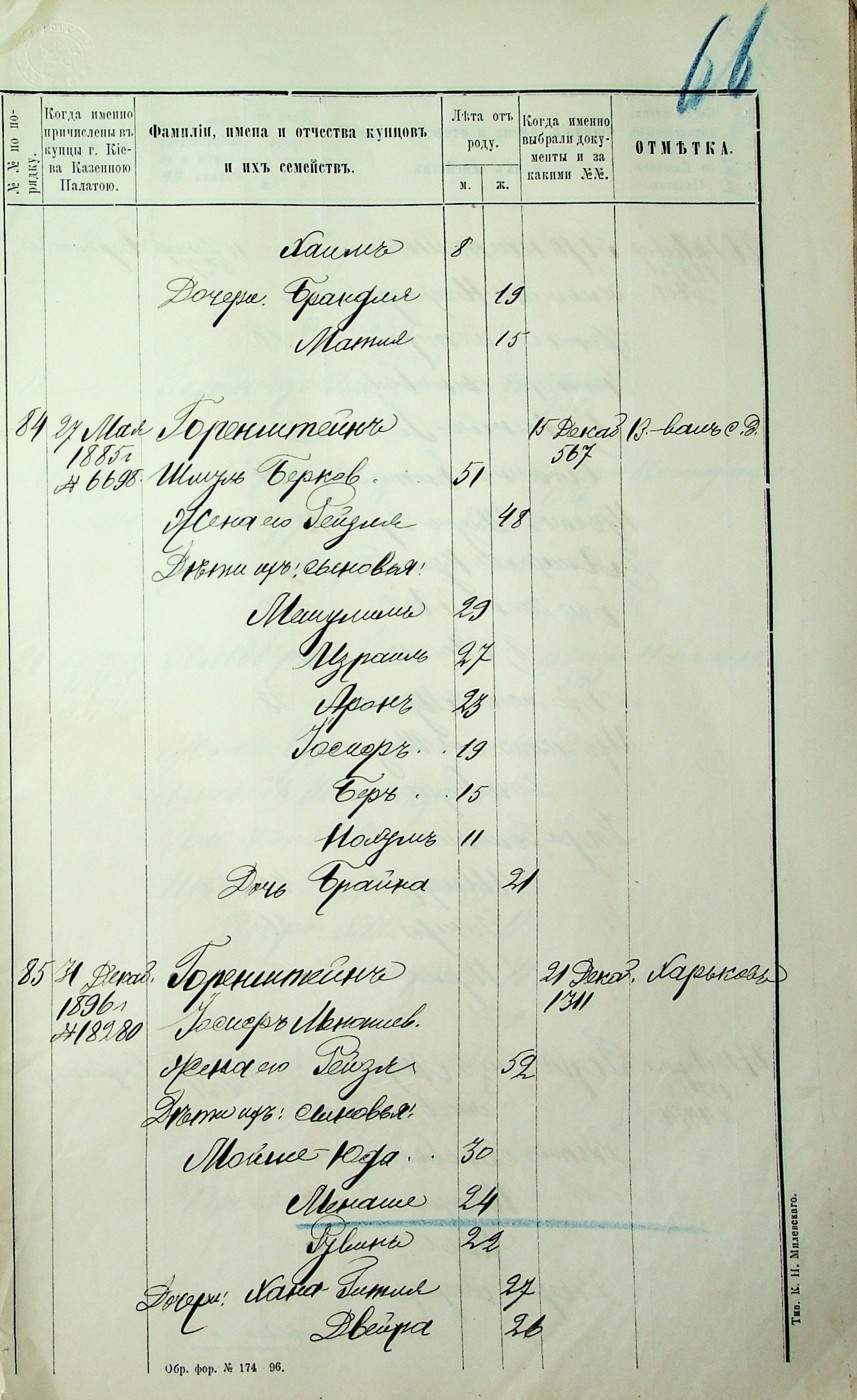 66
№№ по порядку.
Когда именно причислены въ купцы г. Кіева Казенною Палатою.
Фамиліи, имена и отчества купцовъ и ихъ семействъ.
Лѣта отъ роду.
м.
ж.
Когда именно выбрали документы и за какими №№.
ОТМѢТКА.
Хаимъ 8
Дочери: Брандля 19
Матля 15
84 27 Мая Горенштейнъ 15 Декаб
1885 г 567
№ 6698. Шмуль Берков. 51
Жена его Рейзля 48
Дѣти ихъ: сыновья:
Машулимъ 29
Израиль 27
Аронъ 23
Іосифъ 19
Беръ 15
Нахумъ 11
Дочь Брайна 21
85 31 Декаб. Горенштейнъ 21 Декаб. Харьковъ
1896 г 1311
№ 18280 Іосифъ Менашев.
Жена его Рейзя 52
Дѣти ихъ: сыновья:
Мойше-Юда 30
Менаше 24
Рувинъ 22
Дочери: Хана Гитля 27
Двейра 26
Обр. фор. № 174–96.
Тип. К. Н. Милевскаго.